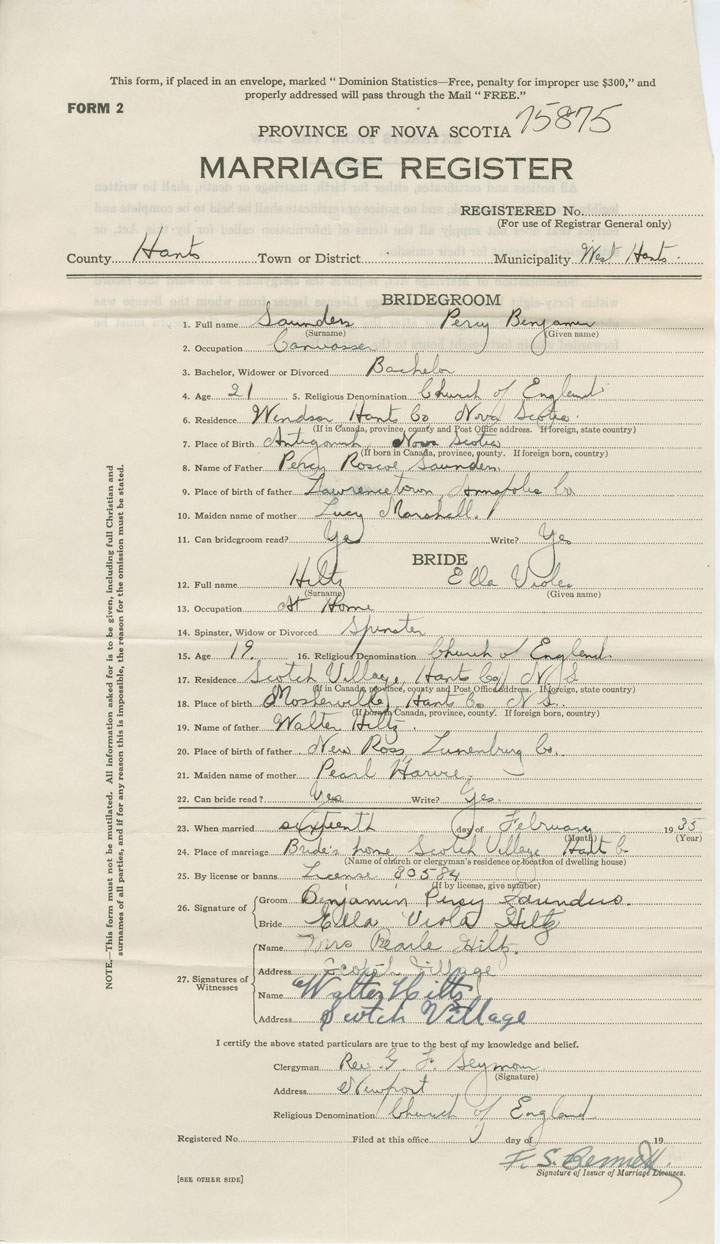 This form, if placed in an envelope, marked " Dominion Statistics—Free, penalty for improper use $300," and
properly addressed will pass through the Mail " FREE."
FORM 2
PROVINCE OF NOVA SCOTIA 75875
MARRIAGE REGISTER
REGISTERED No.
(For use of Registrar General only)
County Hants Town or District Municipality West Hants.
BRIDEGROOM
1. Full name Saunders Percy Benjamin
(Surname) (Given name)
2. Occupation Canvasser
3. Bachelor, Widower or Divorced Bachelor
4. Age 21 5. Religious Denomination Church of England
6. Residence Windsor Hants Co Nova Scotia.
(If in Canada, province, county and Post Office address. If foreign, state country)
7. Place of Birth Antigonish, Nova Scotia
(If born in Canada, province, county. If foreign born, country)
8. Name of Father Percy Roscoe Saunders.
9. Place of birth of father Lawrencetown, Annapolis Co.
10. Maiden name of mother Lucy Marshall.
11. Can bridegroom read? Yes Write? Yes
BRIDE
12. Full name Hiltz Ella Viola
(Surname) (Given name)
13. Occupation At Home
14. Spinster, Widow or Divorced Spinster
15. Age 19. 16. Religious Denomination Church of England.
17. Residence Scotch Village, Hants Co, N.S.
(If in Canada, province, county and Post Office address. If foreign, state country)
18. Place of birth Mosherville, Hants Co. N.S.
(If born in Canada, province, county. If foreign born, country)
19. Name of father Walter Hiltz.
20. Place of birth of father New Ross, Lunenburg Co.
21. Maiden name of mother Pearl Harvie.
22. Can bride read? Yes Write? Yes.
23. When married sixteenth day of February 1935
(Month) (Year)
24. Place of marriage Bride's home Scotch Village Hants Co
(Name of church or clergyman's residence or location of dwelling house)
25. By license or banns License 80584
(If by license, give number)
26. Signature of Groom Benjamin Percy Saunders.
Bride Ella Viola Hiltz
27. Signatures of Witnesses
Name Mrs Pearle Hiltz.
Address Scotch Village
Name Walter Hiltz
Address Scotch Village
I certify the above stated particulars are true to the best of my knowledge and belief.
Clergyman Rev. G. F. Seymour
(Signature)
Address Newport
Religious Denomination Church of England
Registered No. Filed at this office day of 19
F. S. Bennett
Signature of Issuer of Marriage Licenses.
[SEE OTHER SIDE]
NOTE.—This form must not be mutilated. All information asked for is to be given, including full Christian and
surnames of all parties, and if for any reason this is impossible, the reason for the omission must be stated.